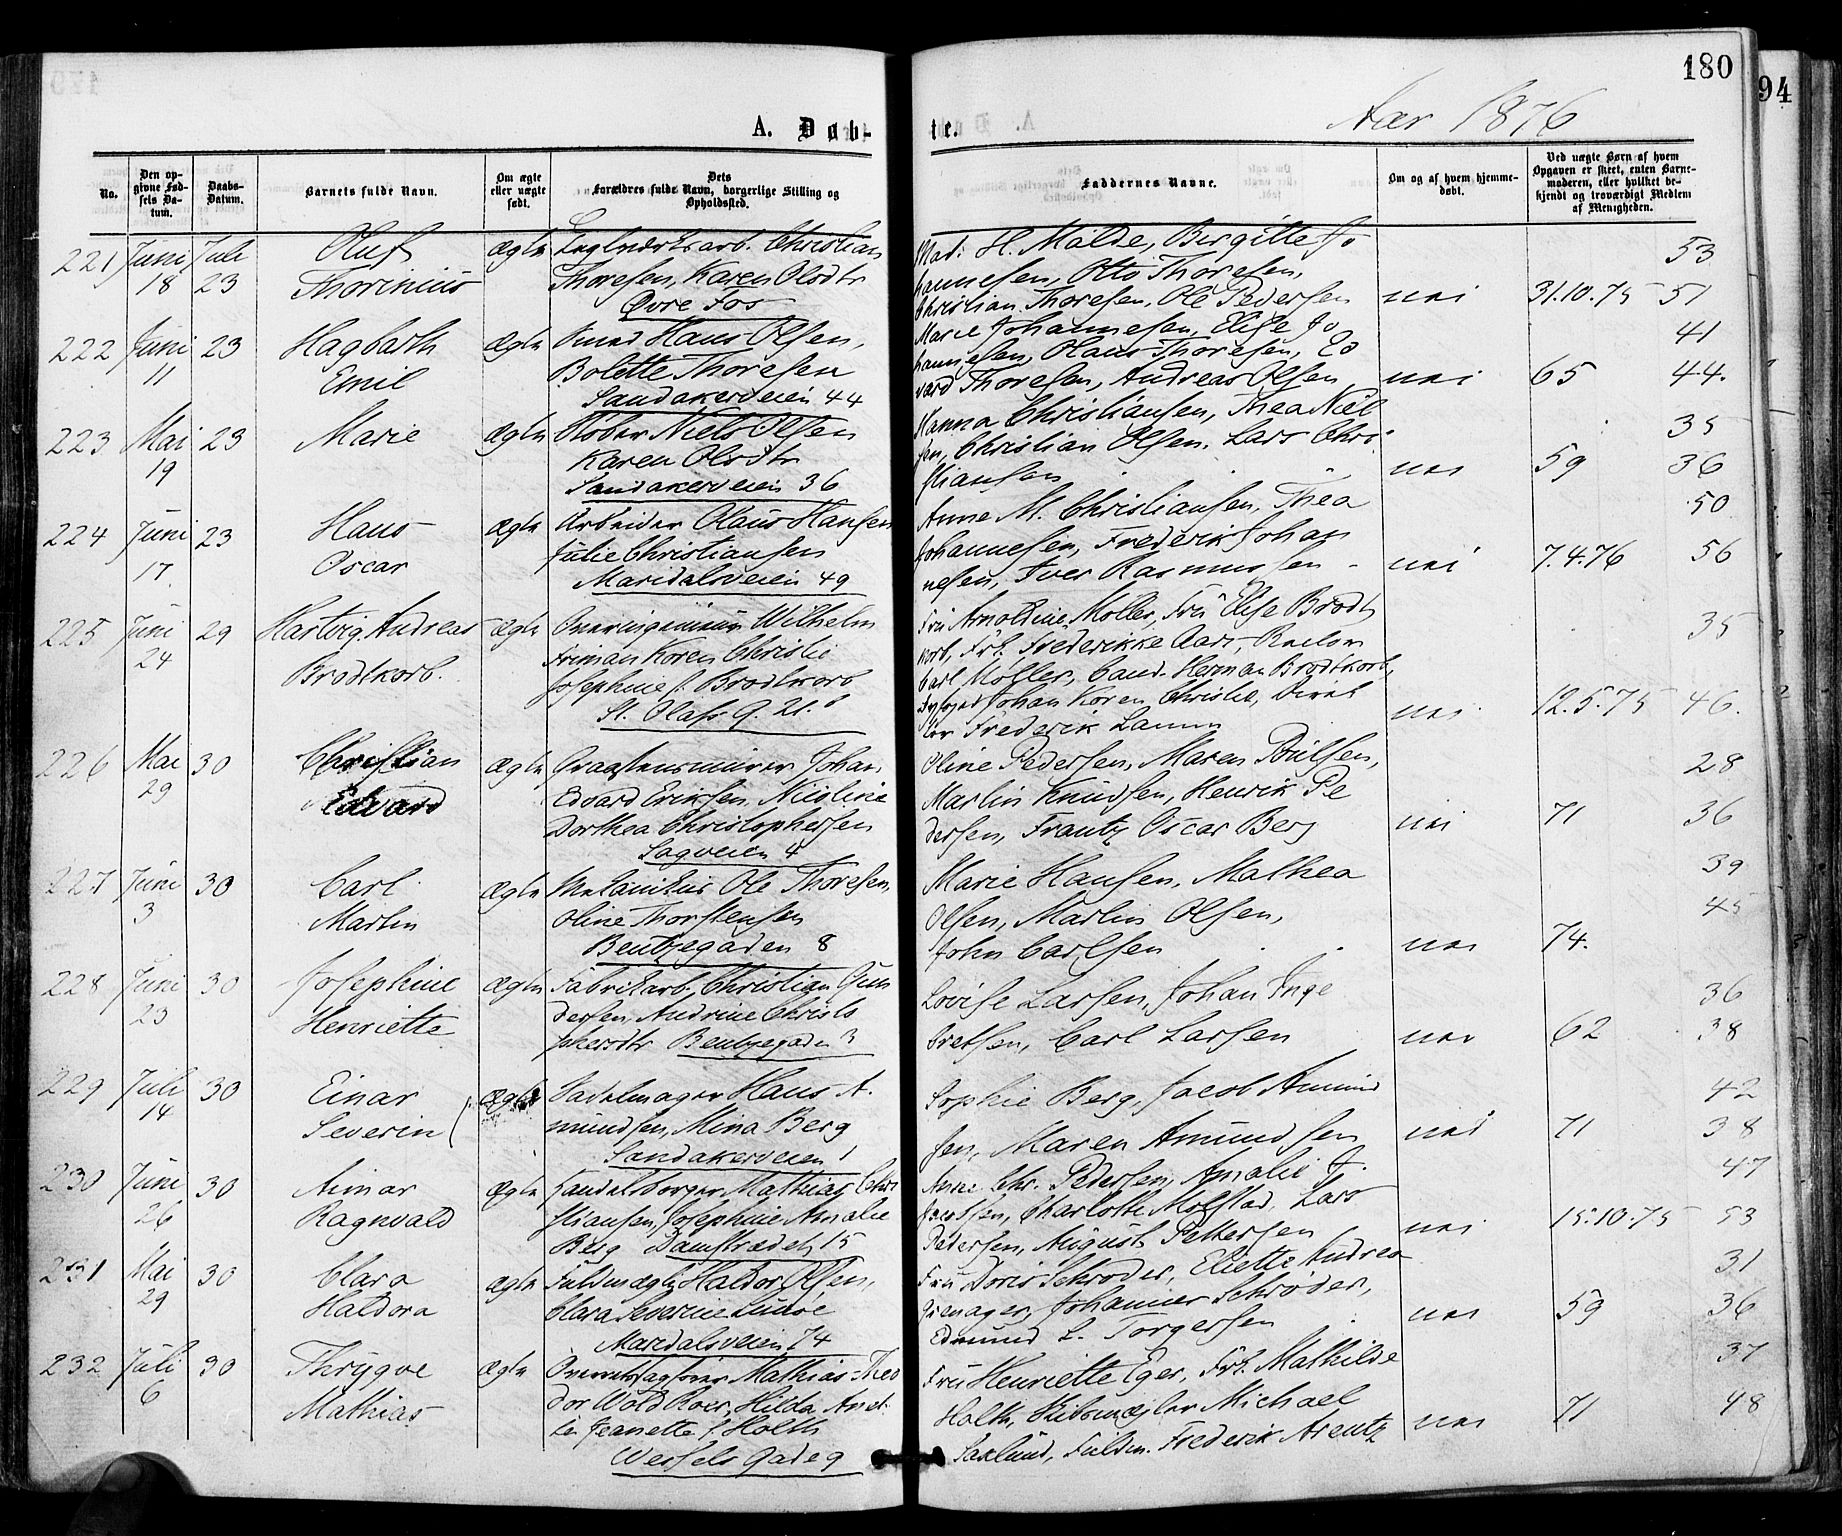 180
94
A. Døb-
te.
Aar 1876
No.
Den op-
givne Fød-
sels Da-
tum.
Daabs-
Datum.
Barnets fulde Navn.
Om ægte
eller uægte
født.
Dets
Forældres fulde Navn, borgerlige Stilling og
Opholdssted.
Faddernes Navne.
Om og af hvem hjemme-
døbt.
Ved uægte Børn af hvem
Opgaven er skeet, enten Barne-
moderen, eller hvilket be-
kjendt og troværdigt Medlem
af Menigheden.
221 Juni 18 Juli 23 Oluf
Thorinius
ægte Teglværksarb. Christian
Thoresen, Karen Olsdtr
Øvre Fos
Mad: H. Molde, Birgitte Jo
hannesen, Otto Thoresen,
Christian Thoresen, Ole Pedersen
nei 31.10.75 53
51
222 Juni 11 23 Hagbarth
Emil
ægte Smed Hans Olsen,
Bolette Thoresen
Sandakerveien 44
Marie Johannesen, Elise Jo
hannesen, Olaus Thoresen, Ed
vard Thoresen, Andreas Olsen
nei 65 41
44.
223 Mai 19 23 Marie
ægte Støber Niels Olsen
Karen Olsdtr
Sandakerveien 36
Hanna Christiansen, Thea Niel
sen, Christian Olsen, Lars Chri
stiansen
nei 59 35
36
224 Juni 17 23 Hans
Oscar
ægte Arbeider Olaus Hansen
Julie Christiansen
Maridalsveien 49
Anne M. Christiansen, Thea
Johannesen, Frederik Johan
nesen, Iver Rasmussen
nei 7.4.76 50
56
225 Juni 24 29 Hartvig Andreas
Brodtkorb.
ægte Overingeniør Wilhelm
Friman Koren Christie
Josephine f. Brodtkorb
St. Olafs G. 21.
Fru Arnoldine Møller, Fru Elise Brodt
korb, Frk. Frederikke Aars,
Carl Møller, Cand. Herman Brodtkorb,
Johan Koren Christie, Direk
tør Frederik
nei 12.5.75 35
46.
226 Mai 29 30 Christian
Edvard
ægte Graastensmurer Johan
Edvard Eriksen, Nicoline
Dorthea Christophersen
Sagveien 4
Oline Pedersen, Maren Poulsen,
Martin Knudsen, Henrik Pe
dersen, Frantz Oscar Berg
nei 71 28
36
227 Juni 3 30 Carl
Martin
ægte Mekanikus Ole Thoresen,
Oline Thorstensen
Bentzegaden 8
Marie Hansen, Mathea
Olsen, Martin Olsen,
John Carlsen
nei 74. 39
45
228 Juni 23 30 Josephine
Henriette
ægte Fabrikarb. Christian Gun
dersen, Andrine Christo
phersdtr Bentzegaden 3
Lovise Larsen, Johan Inge
bretsen, Carl Larsen
nei 62 36
38
229 Juli 14 30 Einar
Severin
ægte Sadelmager Hans A.
mundsen, Mina Berg
Sandakerveien 1
Sophie Berg, Jacob Amund
sen, Maren Amundsen
nei 71 42
38
230 Juni 26 30 Aimar
Ragnvald
ægte Handelsborger Mathias Chri
stiansen, Josephine Amalie
Berg Damstrædet 15
Anne Chr. Pedersen, Amalie J.
Jacobsen, Charlotte Molstad, Lars
Pedersen, August Pettersen
nei 15.10.75 47
53
231 Mai 29 30 Clara
Haldora
ægte Fuldmægtig Haldor Olsen,
Clara Severine
Maridalsveien 74
Fru Doris Schrøder, Eliette Andrea
Grenager, Johannes Schrøder,
Edmund L. Torgersen
nei 59 31
36
232 Juli 6 30 Thrygve
Mathias
ægte Overretssagfører Mathias Theo
dor Wold Roer, Hilda Amal
ie Jeanette f. Holth
Wessels Gade 9
Fru Henriette Eger, Frk. Mathilde
Holth, Skibsmægler Michael
Saxlund, Fuldm. Frederik Arentz
nei 71 37
48